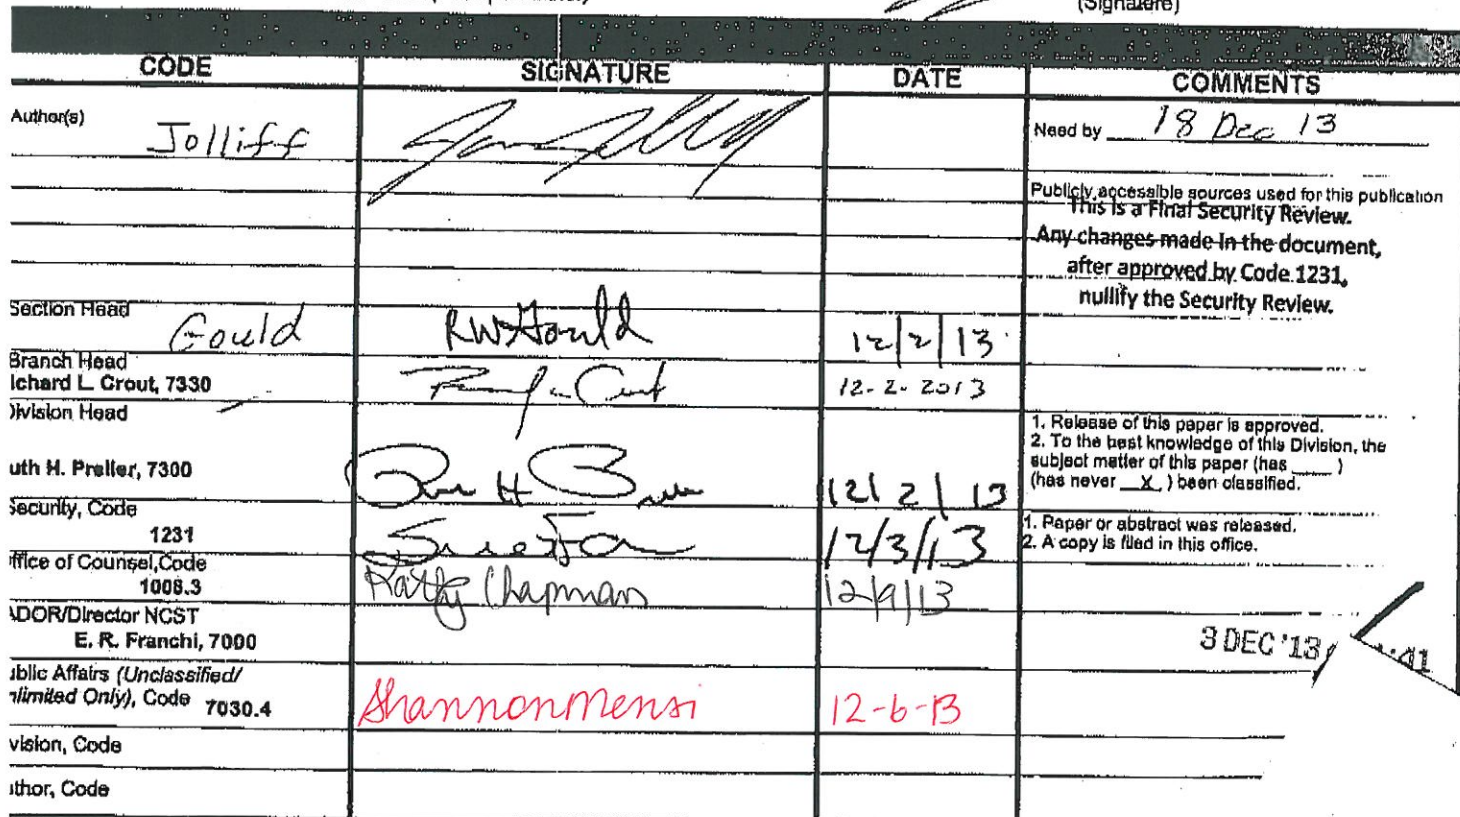 (Signature)
CODE SIGNATURE DATE COMMENTS
Author(s) Jolliff Need by 18 Dec 13
Publicly accessible sources used for this publication
This is a Final Security Review.
Any changes made in the document,
after approved by Code 1231,
nullify the Security Review.
Section Head Gould RWGould 12/2/13
Branch Head
ichard L. Crout, 7330 12-2-2013
Division Head
1. Release of this paper is approved.
2. To the best knowledge of this Division, the
subject matter of this paper (has ____ )
(has never X ) been classified.
uth H. Preller, 7300 12/2/13
Security, Code
1231 12/3/13
1. Paper or abstract was released.
2. A copy is filed in this office.
ffice of Counsel,Code
1008.3 Kathy Chapman 12/9/13
ADOR/Director NCST
E. R. Franchi, 7000 3 DEC '13 :41
ublic Affairs (Unclassified/
nlimited Only), Code 7030.4 Shannon Mensi 12-6-13
vision, Code
thor, Code